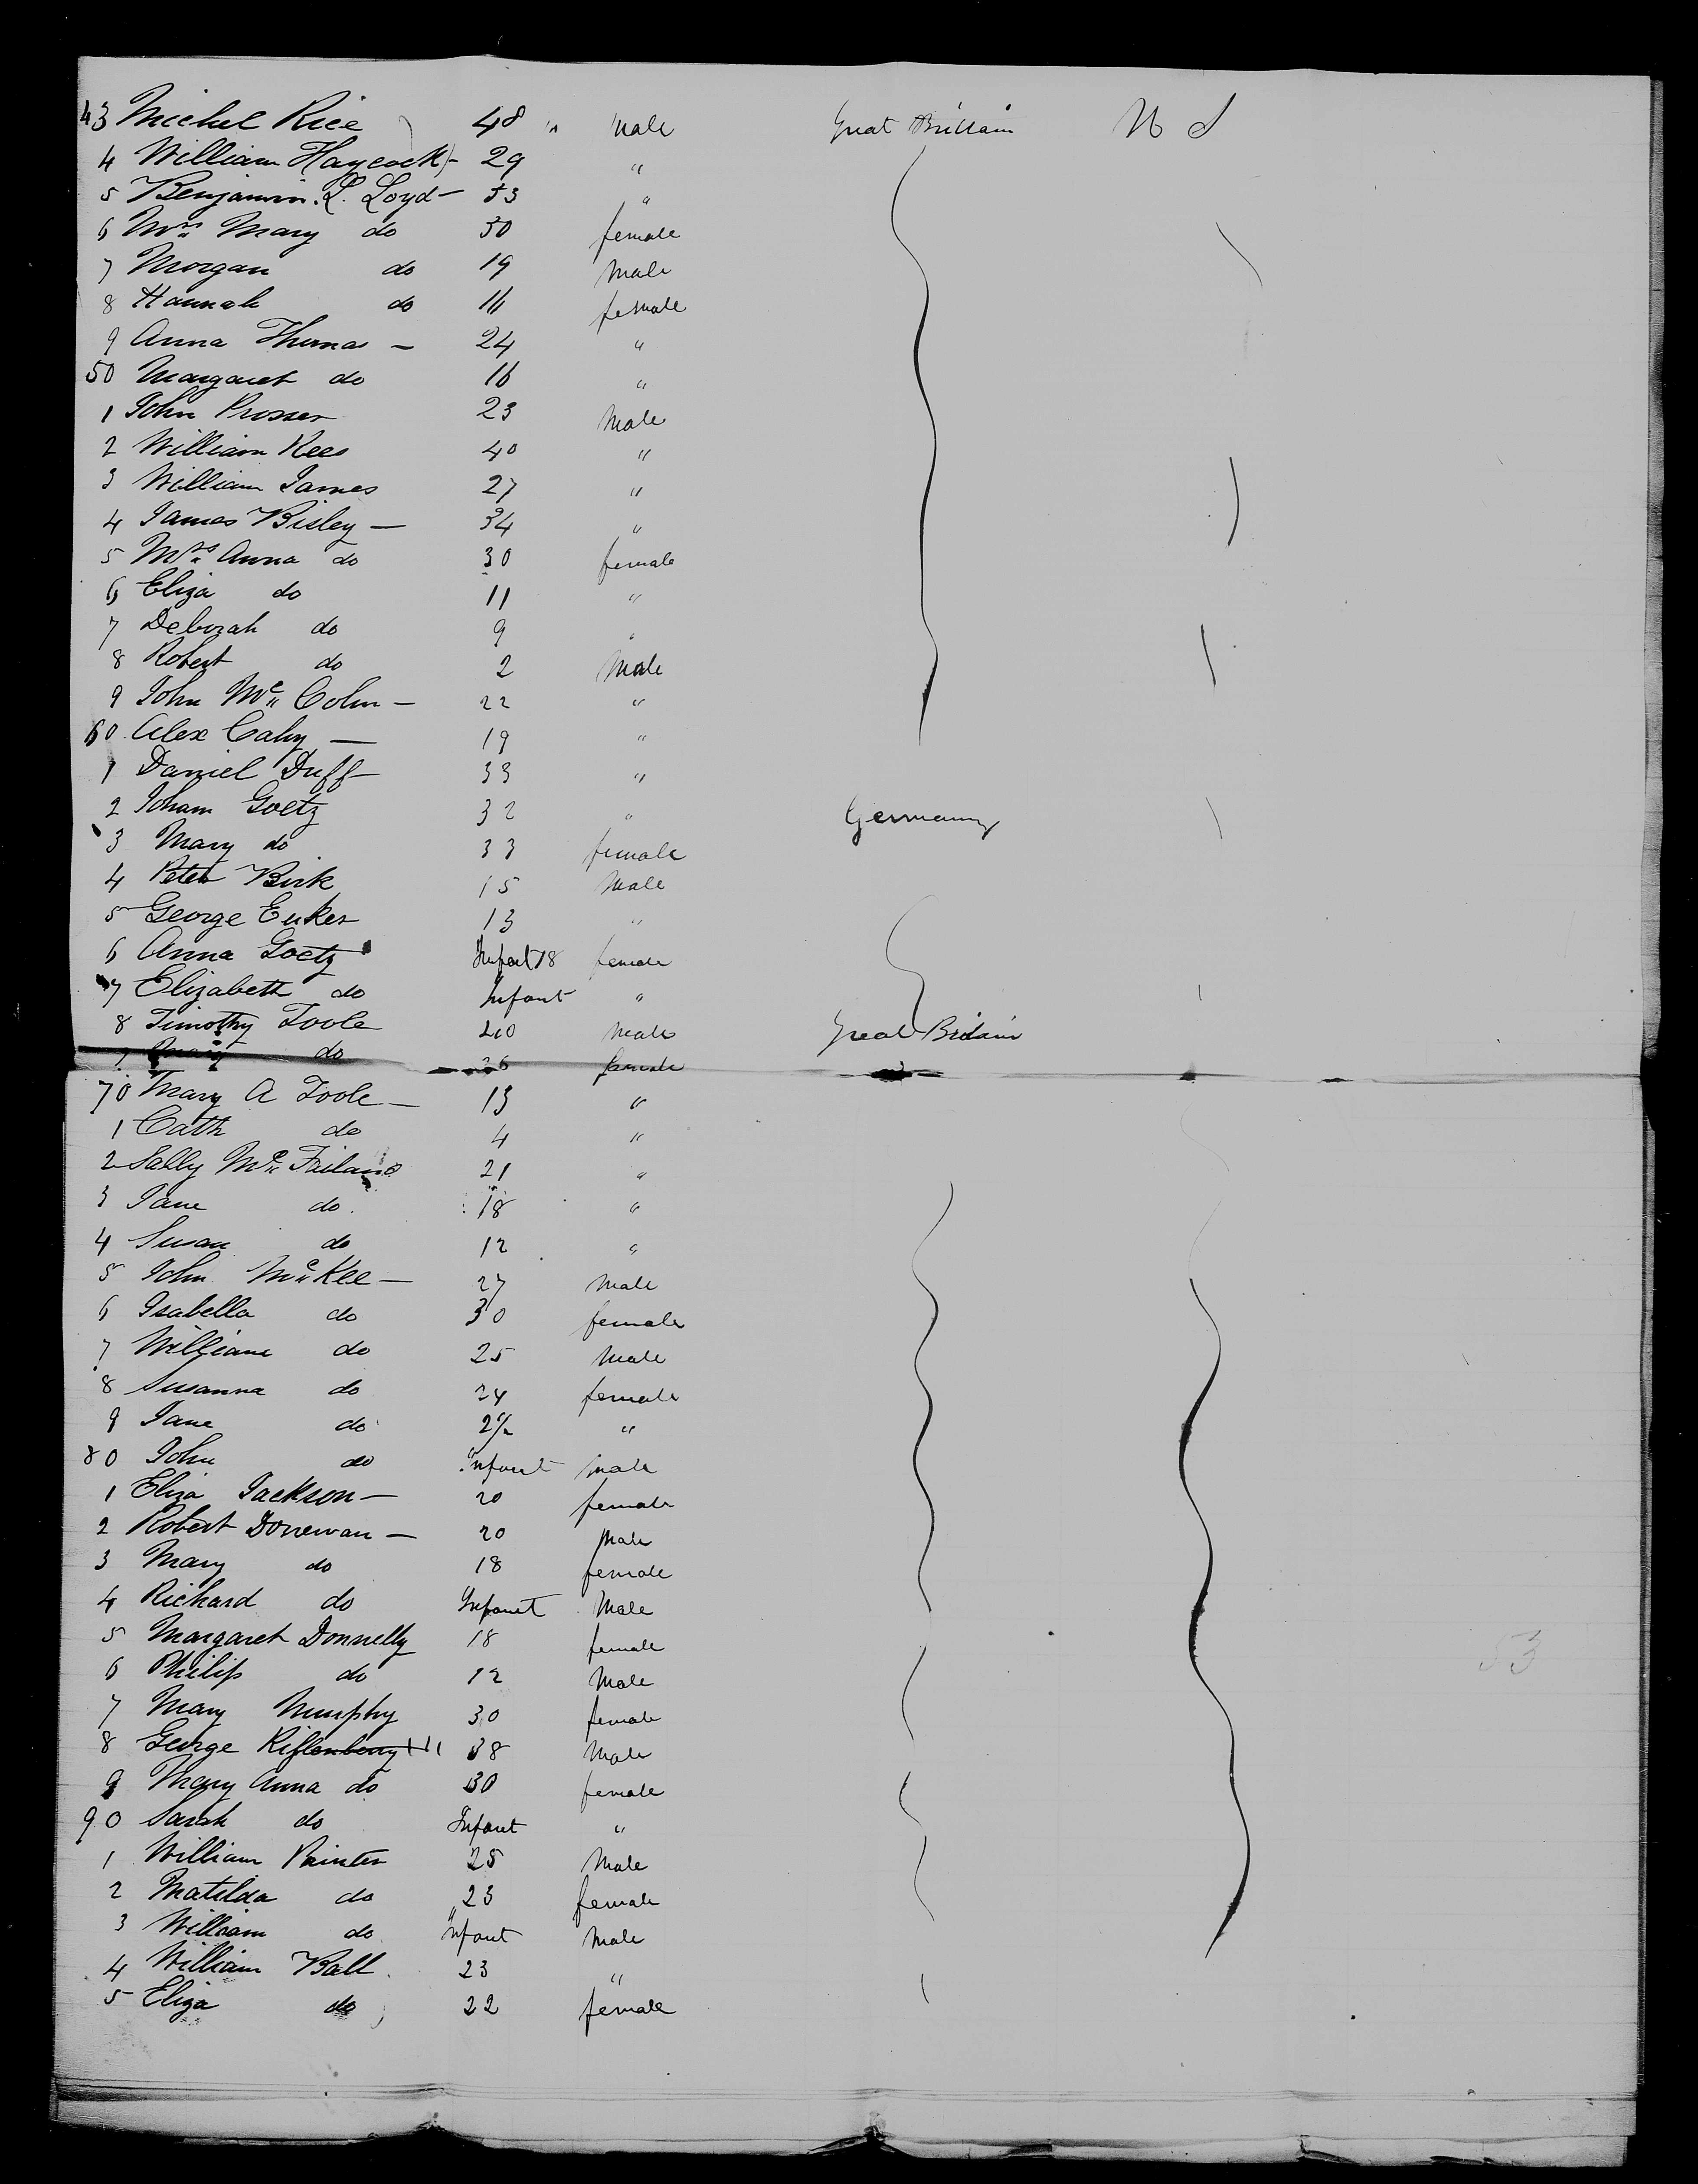 43 Michel Rice 48 " Male Great Brittain U S
4 William Haycock - 29 "
5 Benjamin. L. Loyd - 53 "
6 Mrs Mary do 50 female
7 Morgan do 19 Male
8 Hannah do 16 female
9 Anna Thomas - 24 "
50 Margaret do 16 "
1 John Prosser 23 Male
2 William Rees 40 "
3 William James 27 "
4 James Bisley - 34 "
5 Mrs Anna do 30 female
6 Eliza do 11 "
7 Deborah do 9 "
8 Robert do 2 Male
9 John Mc Colm - 22 "
60 Alex Cahy - 19 "
1 Daniel Duff 33 "
2 Joham Goetz 32 " Germany
3 Mary do 33 female
4 Peter Birk 15 Male
5 George Euker 13 "
6 Anna Goetz Infant 18 female
7 Elizabeth do Infant "
8 Timothy Toole 40 Male Great Britain
9 do 36 female
70 Mary A Toole - 13 "
1 Cath do 4 "
2 Sally Mc 21 "
3 Jane do 18 "
4 Susan do 12 "
5 John McKee - 27 Male
6 Isabella do 30 female
7 William do 25 Male
8 Susanna do 24 female
9 Jane do 2½ "
80 John do Infant Male
1 Eliza Jackson - 20 female
2 Robert Donewan - 20 Male
3 Mary do 18 female
4 Richard do Infant Male
5 Margaret Donnelly 18 female
6 Philip do 12 Male
7 Mary Murphy 30 female
8 George Riflenberry 38 Male
9 Mary Anna do 30 female
90 Sarah do Infant "
1 William Painter 25 Male
2 Matilda do 23 female
3 William do Infant Male
4 William Ball 23 "
5 Eliza do 22 female
53